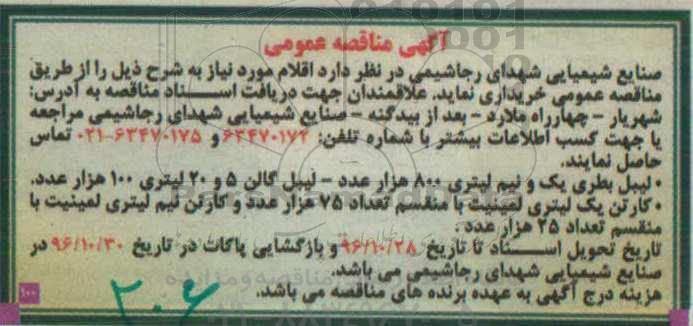 آگهی مناقصه عمومی
صنایع شیمیایی شهدای رجاشیمی در نظر دارد اقلام مورد نیاز به شرح ذیل را از طریق
مناقصه عمومی خریداری نماید. علاقمندان جهت دریافت اسناد مناقصه به آدرس:
شهریار - چهارراه ملارد - بعد از بیدگنه - صنایع شیمیایی شهدای رجاشیمی مراجعه
یا جهت کسب اطلاعات بیشتر با شماره تلفن: ۶۳۴۷۰۱۷۲ و ۶۳۴۷۰۱۷۵-۰۲۱ تماس
حاصل نمایند.
• لیبل بطری یک و نیم لیتری ۸۰۰ هزار عدد - لیبل گالن ۵ و ۲۰ لیتری ۱۰۰ هزار عدد.
• کارتن یک لیتری لمینیت با منقسم تعداد ۷۵ هزار عدد و کارتن نیم لیتری لمینیت با
منقسم تعداد ۲۵ هزار عدد.
تاریخ تحویل اسناد تا تاریخ ۹۶/۱۰/۲۸ و بازگشایی پاکات در تاریخ ۹۶/۱۰/۳۰ در
صنایع شیمیایی شهدای رجاشیمی می باشد.
هزینه درج آگهی به عهده برنده های مناقصه می باشد.
۱۰۰
۲۰۶